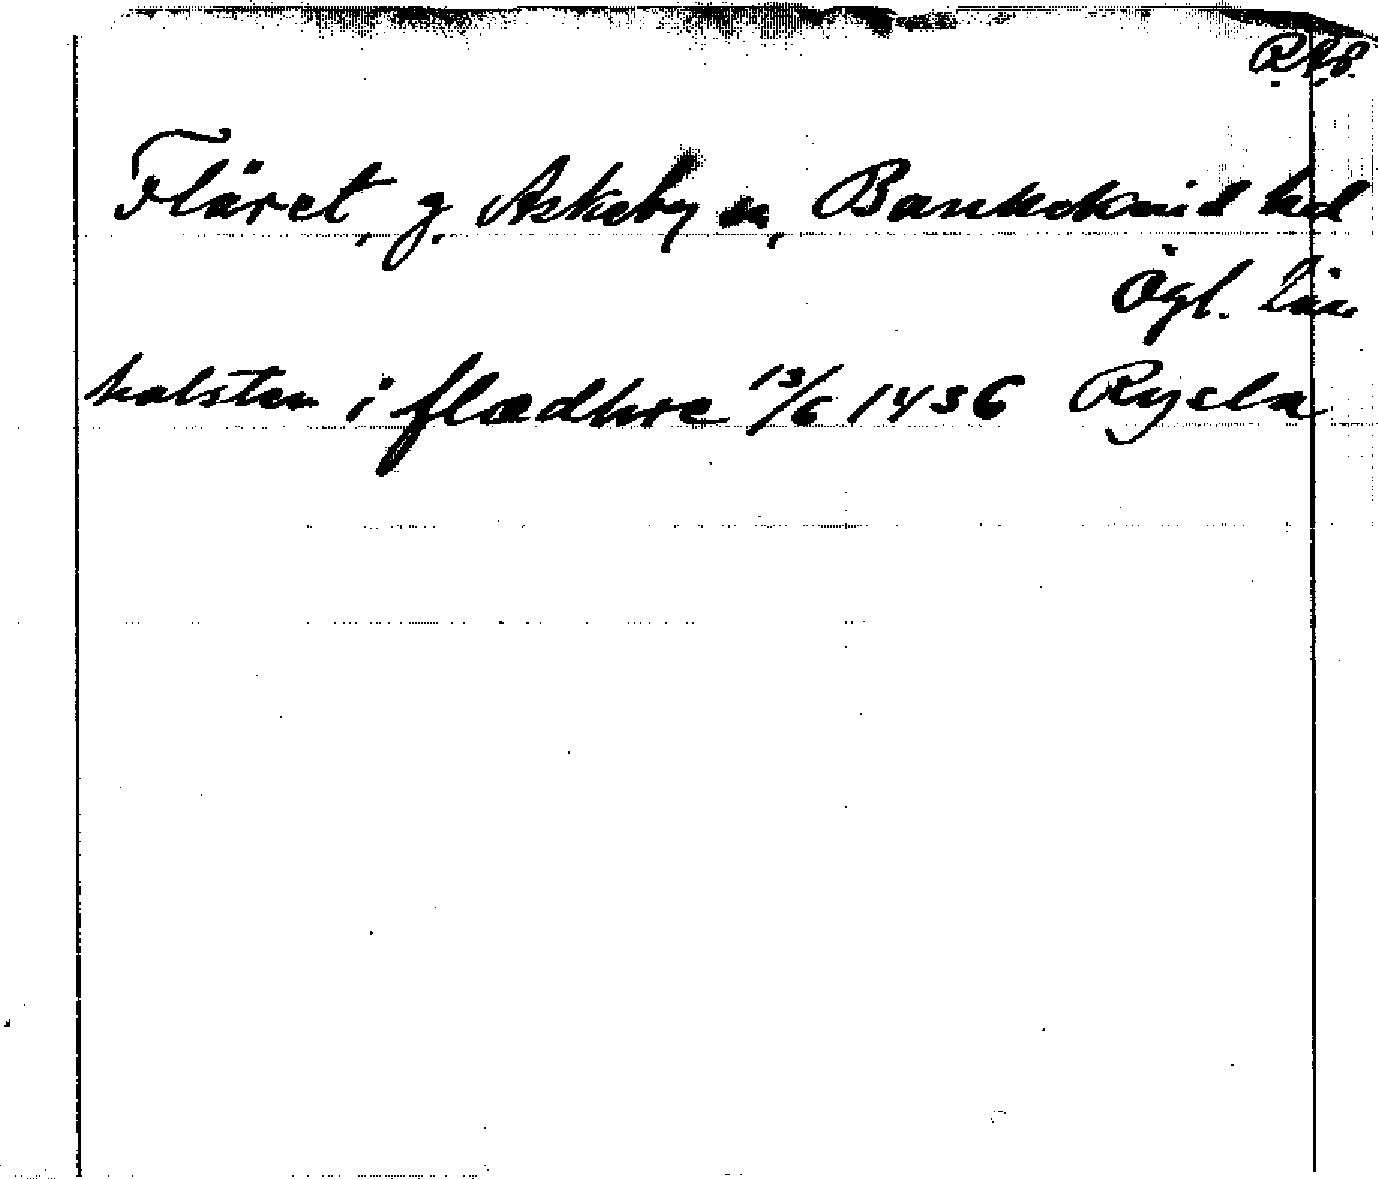 Fläret, g. Askeby sn, Bankekinds hd
Ögl. län
halsten i flædhre 13/6 1436 Rysela